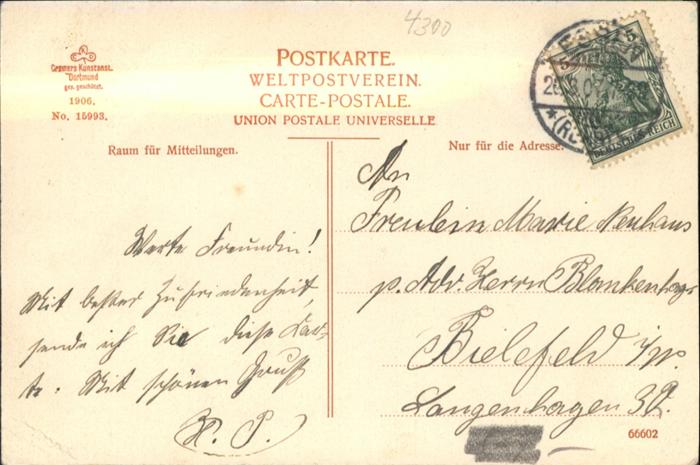 4300
Cramers Kunstanst.
Dortmund
ges. geschützt.
1906.
No. 15993.
POSTKARTE.
WELTPOSTVEREIN.
CARTE-POSTALE.
UNION POSTALE UNIVERSELLE
ESSEN
5 5
DEUTSCHES REICH
Raum für Mitteilungen.
Nur für die Adresse.
Werte Freundin!
Mit bester Zufriedenheit,
sende ich Sie diese Kar-
te. Mit schönen Gruß
An
Freulein Marie Neuhaus
p. Adr. Herrn Blankenhagen
Bielefeld i/w.
Langenhagen 32.
66602